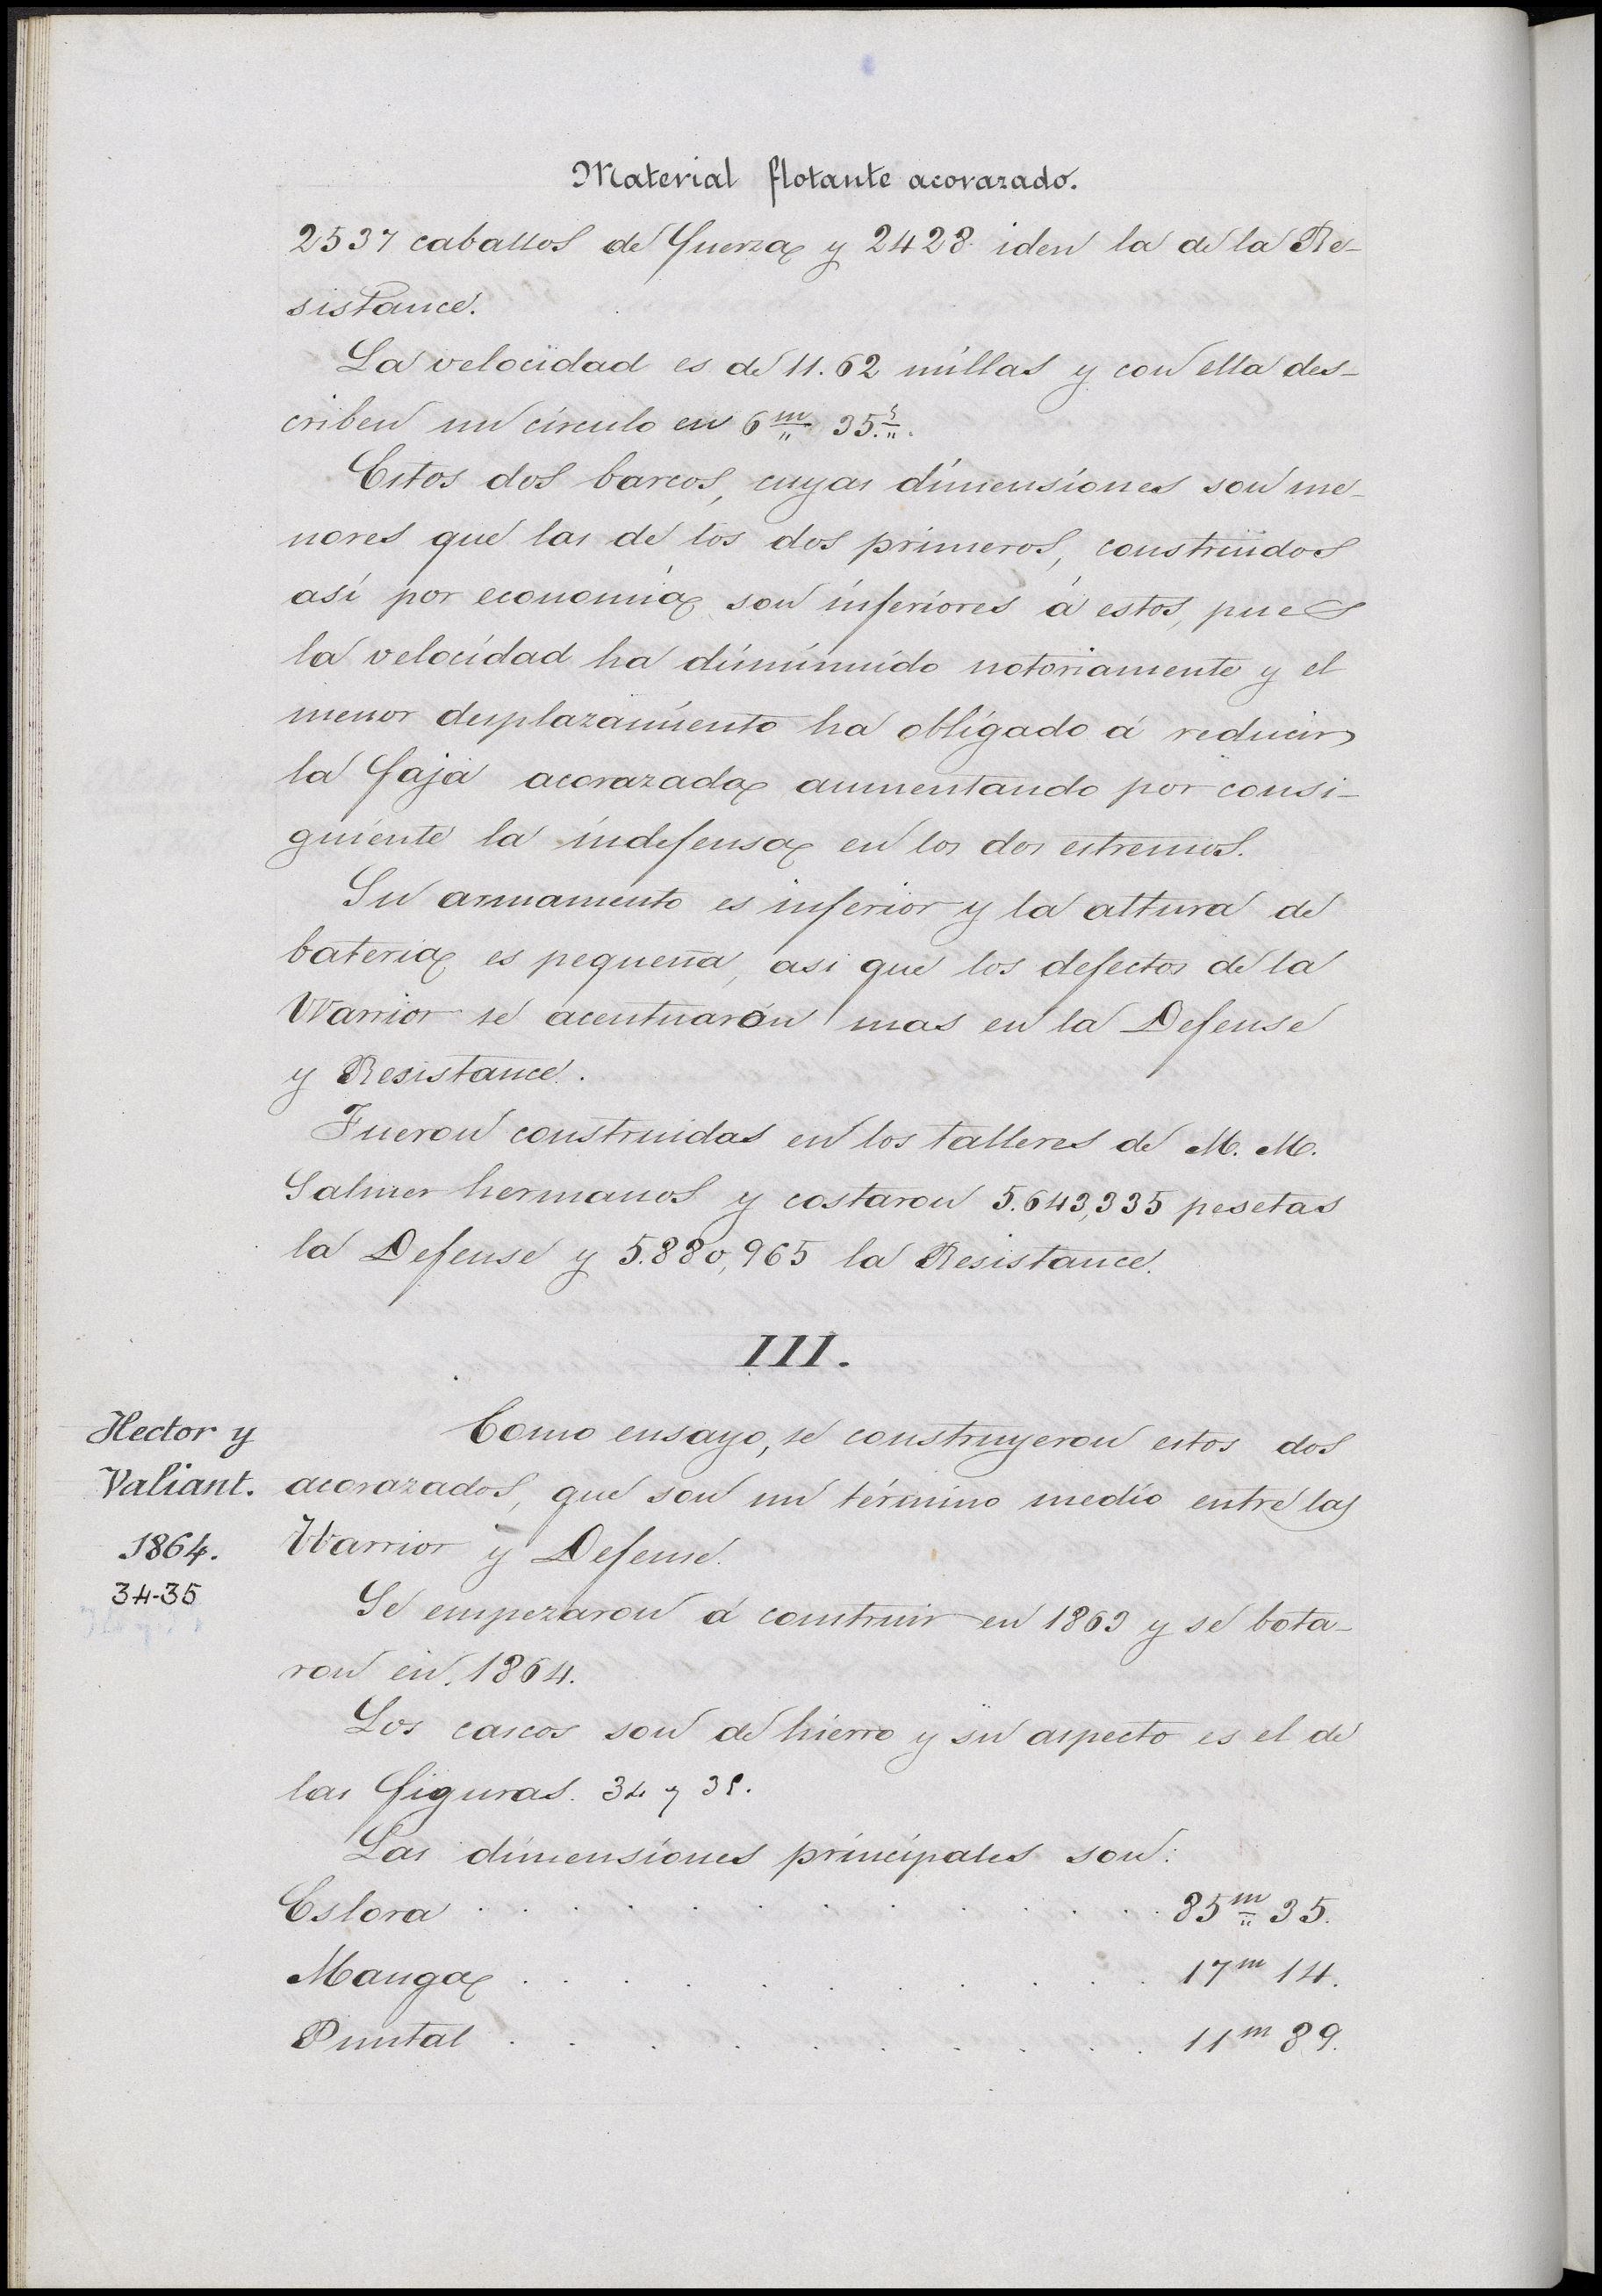 Material flotante acorazado.
2537 caballos de fuerza y 2428 iden la de la Re-
sistance.
La velocidad es de 11.62 millas y con ella des-
criben un círculo en 6m 35.s
Estos dos barcos, cuyas dimensiones son me-
nores que las de los dos primeros, construidos
así por economía son inferiores á estos, pues
la velocidad ha disminuido notoriamente y el
menor desplazamiento ha obligado á reducir
la faja acorazada aumentando por consi-
guiente la indefensa en los dos estremos.
Su armamento es inferior y la altura de
bateria es pequeña, asi que los defectos de la
Warrior se acentuarón mas en la Defense
y Resistance.
Fueron construidas en los talleres de M. M.
Salmer hermanos y costaron 5.643,335 pesetas
la Defense y 5.880,965 la Resistance.
III.
Hector y
Valiant.
1864.
34-35
Como ensayo, se construyeron estos dos
acorazados, que son un término medio entre las
Warrior y Defense.
Se empezaron á construir en 1863 y se bota-
ron en 1864.
Los cascos son de hierro y su aspecto es el de
las figuras. 34 y 35.
Las dimensiones principales son:
Eslora . . . . . . . . . . . . 85m 35.
Manga . . . . . . . . . . 17m 14.
Puntal . . . . . . . . . . 11m 89.